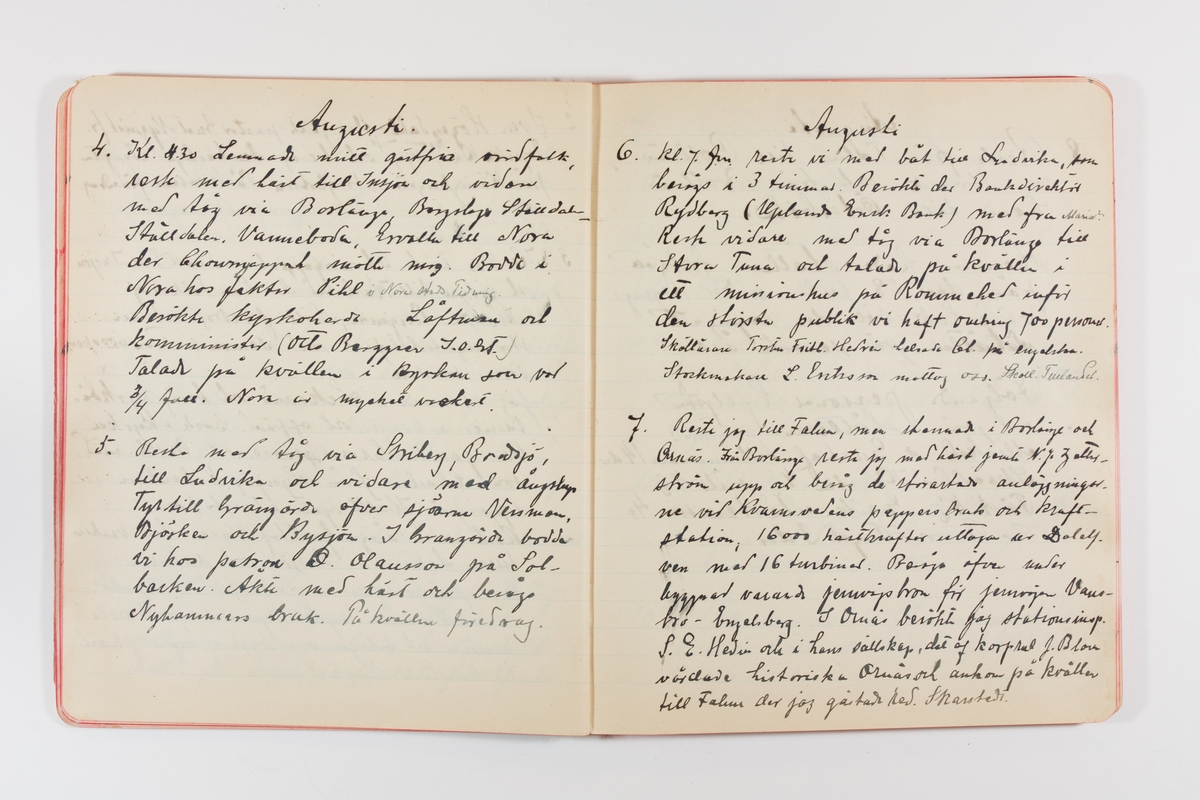 Augusti.
4. Kl. 4.30 Lemnade mitt gästfria värdfolk,
reste med häst till Insjön och vidare
med tåg via Borlänge, Bergslags Ställdalen
Ställdalen. Vanneboda, Ervalla till Nora
der mötte mig. Bodde i
Nora hos faktor Pihl i Nora stads Tidning.
Besökte kyrkoherde Låftman och
komminister (Otto Berggren I.O.G.T.)
Talade på kvällen i kyrkan som var
3/4 full. Nora är mycket vackert.
5. Resta med tåg via Striberg, Bredsjö,
till Ludvika och vidare med ångslup
Tyr till Grängärde öfver sjöarne Vessman,
Björken och Bysjön. I Grangärde bodde
vi hos patron O. Olausson på Sol-
backen. Åkte med häst och besåg
Nyhammars bruk. På kvällen föredrag.
Augusti
6. kl. 7. fm. reste vi med båt till Ludvika, som
besågs i 3 timmar. Besökte der Bankdirektör
Rydberg (Uplands Ensk. Bank) med fru
Reste vidare med tåg via Borlänge till
Stora Tuna och talade på kvällen i
ett missionshus på Rommehed inför
den största publik vi haft omkring 700 personer.
Skolläraren Torsten Fritl. Hedrén helsade på engelska.
Stockmakare L. Eriksson mottog oss. Skoll.
7. Reste jag till Falun, men stannade i Borlänge och
Ornäs. Från Borlänge reste jag med häst jemte N. J. Zetter-
ström upp och besåg de storartade anläggningar-
ne vid Kvarnsvedens pappersbruk och kraft-
station, 16000 hästkrafter uttagen ur Dalelf-
ven med 16 turbiner. Besåg äfven under
byggnad varande jernvägsbron för jernvägen Vans-
bro - Engelsberg. I Ornäs besökte jag stationsinsp.
S. E. Hedin och i hans sällskap, det af korpral J. Blom
vårdade historiska Ornäs och ankom på kvällen
till Falun der jag gästade Red. Skarstedt.